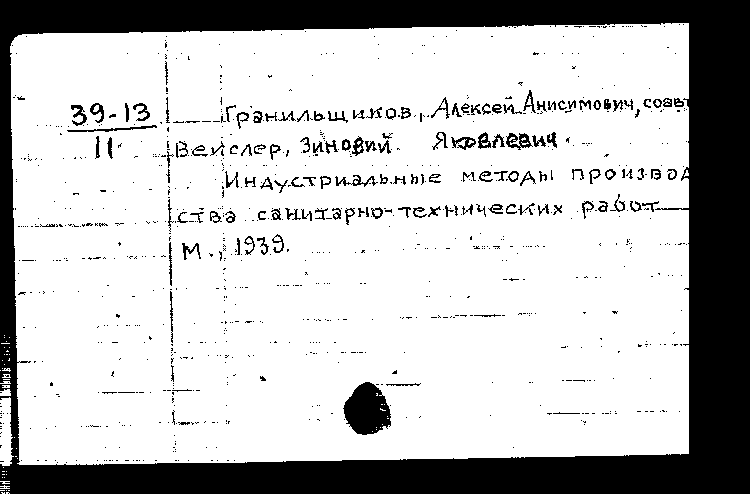 39-13
11
Гранильщиков, Алексей Анисимович, соавт
Вейслер, Зиновий Яковлевич.
Индустриальные методы производ
ства санитарно-технических работ
М., 1939.